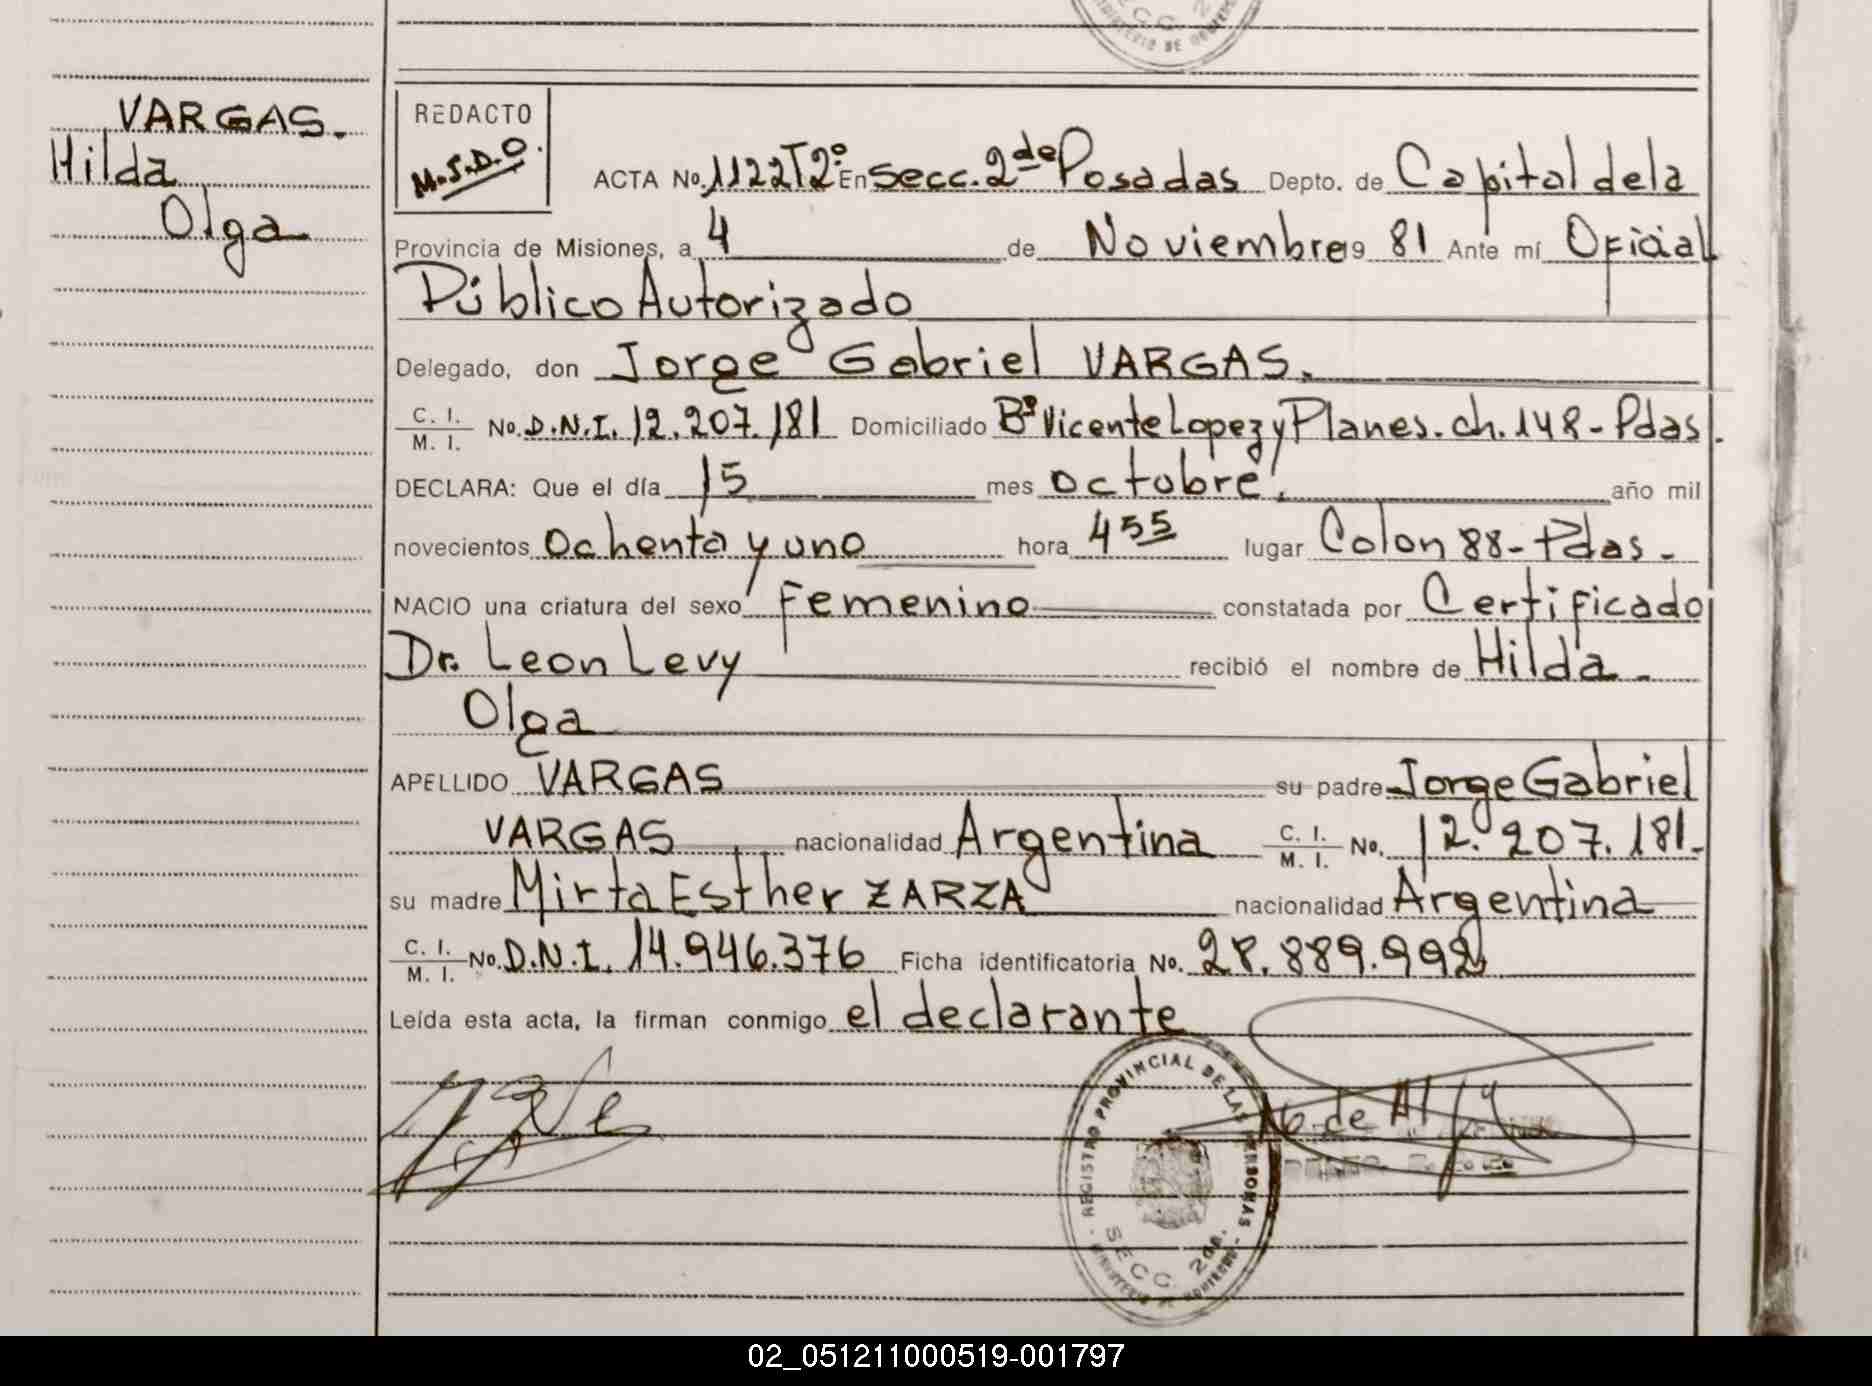 VARGAS.
Hilda
Olga
REDACTO
M.S.D.O.
ACTA No. 1122T2º En Secc. 2da Posadas Depto. de Capital dela
Provincia de Misiones, a 4 de Noviembre 19 81 Ante mí Oficial
Público Autorizado
Delegado, don Jorge Gabriel VARGAS.
C. I.
M. I. No. D.N.I. 12.207.181 Domiciliado Bº Vicente Lopez y Planes. ch. 148 - Pdas.
DECLARA: Que el día 15 mes octubre. año mil
novecientos ochenta y uno hora 4 55 lugar Colon 88 - Pdas -
NACIO una criatura del sexo Femenino constatada por Certificado
Dr. Leon Levy recibió el nombre de Hilda -
Olga
APELLIDO VARGAS su padre Jorge Gabriel
VARGAS nacionalidad Argentina C. I.
M. I. No. 12.207.181.
su madre Mirta Esther ZARZA nacionalidad Argentina
C. I.
M. I. No. D.N.I. 14.946.376 Ficha identificatoria No. 28.889.992
Leída esta acta, la firman conmigo el declarante
REGISTRO PROVINCIAL DE LAS PERSONAS
SECC. 2da.
MINISTERIO DE GOBIERNO
02_051211000519-001797